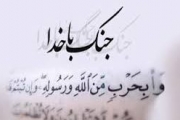 جنگ با خدا
وَا بِحَرْبٍ مِّنَ اللَّهِ وَرَسُولِهِ وَإِن تُبْتُمْ